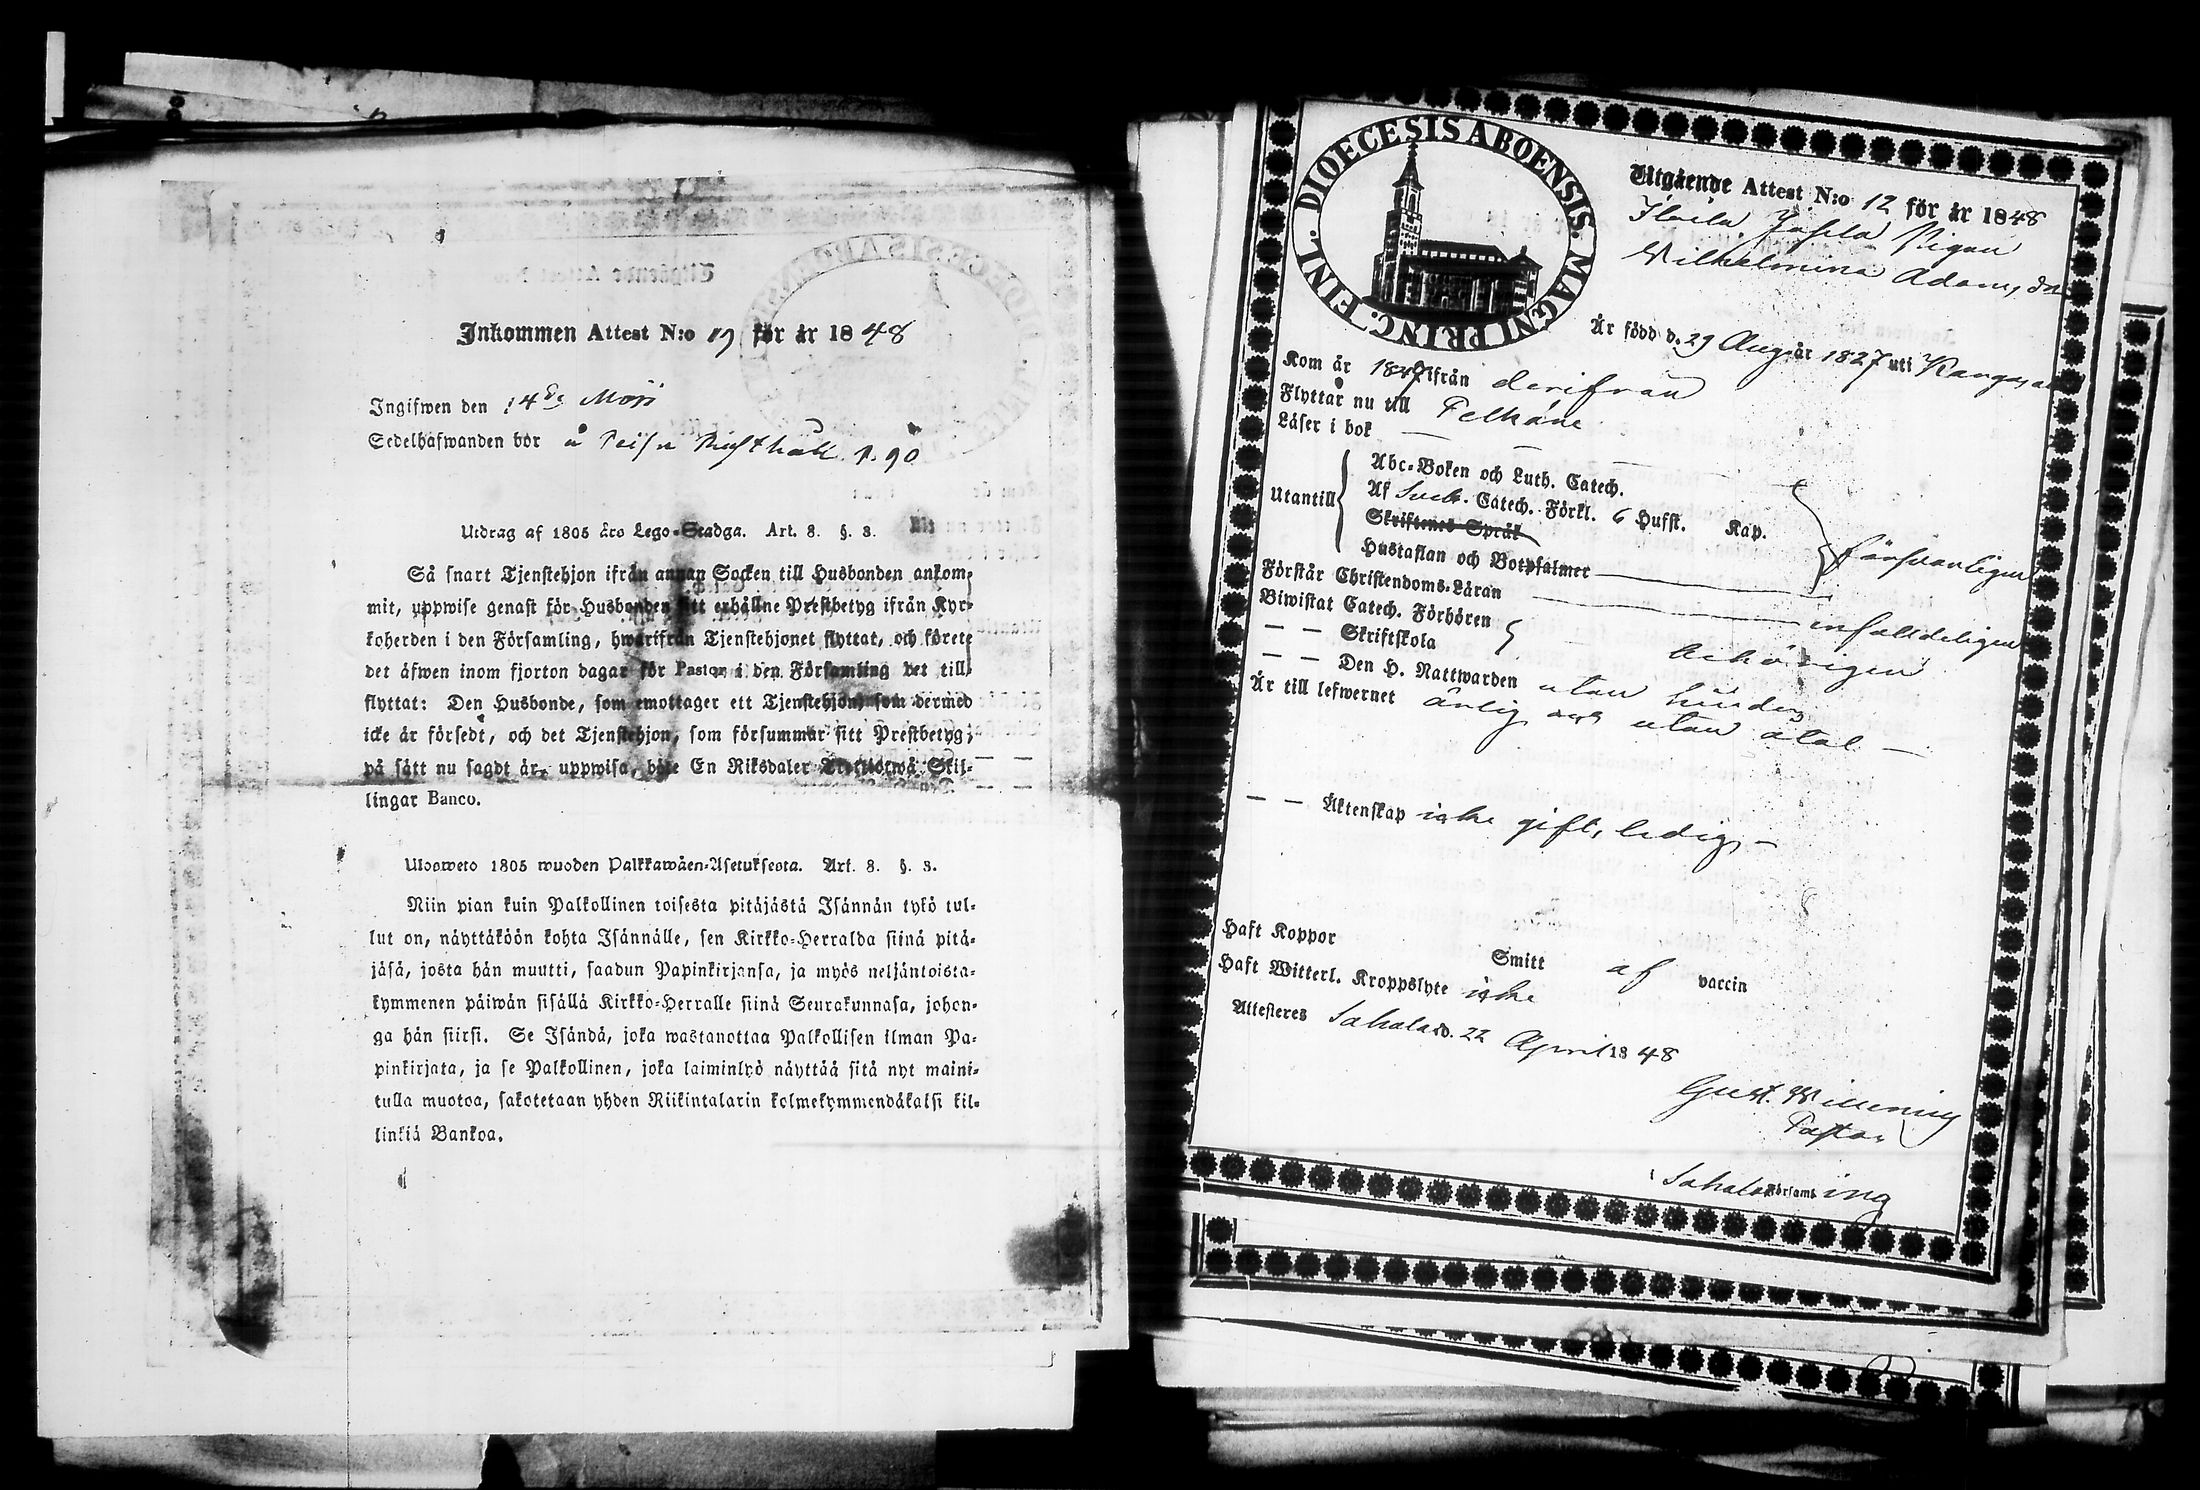 Inkommen Attest N:o 19 för år 1848
Ingifwen den 14de
Sedelhafwanden bor å Rusthåll p. 90
Utdrag af 1805 års Lego-Stadga. Art. 8. §. 3.
Så snart Tjenstehjon ifrån annan Socken till Husbonden ankom-
mit, uppwise genast för Husbonden sitt erhållne Prestbetyg ifrån Kyr-
koherden i den Församling, hwarifrån Tjenstehjonet flyttat, och förete
det äfwen inom fjorton dagar för Pastor i den Församling det till-
flyttat: Den Husbonde, som emottager ett Tjenstehjon, som dermed
icke är försedt, och det Tjenstehjon, som försummar sitt Prestbetyg,
på sätt nu sagdt är, uppwisa, böte En Riksdaler Trettiotwå Skil-
lingar Banco.
Ulosweto 1805 wuoden Palkkawäen-Asetuksesta. Art. 8. §. 3.
Niin pian kuin Palkollinen toisesta pitäjästä Isännän tykö tul-
lut on, näyttäköön kohta Isännälle, sen Kirkko-Herralda siinä pitä-
jäsä, josta hän muutti, saadun Papinkirjansa, ja myös neljäntoista-
kymmenen päiwän sisällä Kirkko-Herralle siinä Seurakunnasa, johon-
ga hän siirsi. Se Isändä, joka wastanottaa Palkollisen ilman Pa-
pinkirjata, ja se Palkollinen, joka laiminlyö näyttää sitä nyt maini-
tulla muotoa, sakotetaan yhden Riikintalarin kolmekymmendäkaksi kil-
linkiä Bankoa.
DIOECESIS ABOENSIS. MAGNI PRINC. FINL.
Utgående Attest N:o 12 för år 1848
Pigan
Wilhelmina Adams, d
Är född d. 29 Aug år 1827 uti
Kom år 1847 ifrån derifrån
Flyttar nu till Pelkäne
Läser i bok
Utantill
Abc-Boken och Luth. Catech.
Af Sveb. Catech. Förkl. 6 Hufst. Kap.
Skriftenes Språk
Hustaflan och Botpsalmer försvarligen
Förstår Christendoms-Läran enfalldeligen
Biwistat Catech. Förhören
— — Skriftskola behörigen
— — Den H. Nattwarden utan hinder
Är till lefwernet ärlig och utan åtal —
— — Äktenskap icke gift, ledig —
Haft Koppor Smitt af vaccin
Haft Witterl. Kroppslyte icke
Attesteres Sahalax d. 22 April 1848
Gust.
Pastor
i Sahalax Församling